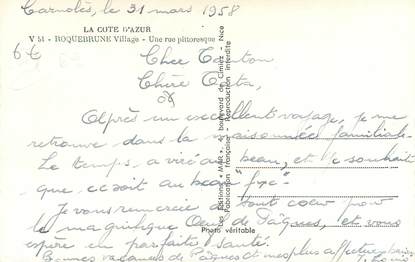 Carnolès, le 31 mars 1958
LA COTE D'AZUR
V 51 - ROQUEBRUNE Village - Une rue pittoresque
6t
Cher Tonton
Chère Tata,
Après un excellent voyage, je me
retrouve dans la maisonnée familiale.
Le temps a viré au beau, et je souhait
que ce soit au beau "fixe"
Je vous remercie de tout coeur pour
le magnifique Oeuf de Pâques, et vous
espère en parfaite santé.
Bonnes vacances de Pâques et mes plus affectueux
Photo véritable
Les Editions "MAR", boulevard de Cimiez - Nice
Fabrication française - Reproduction interdite